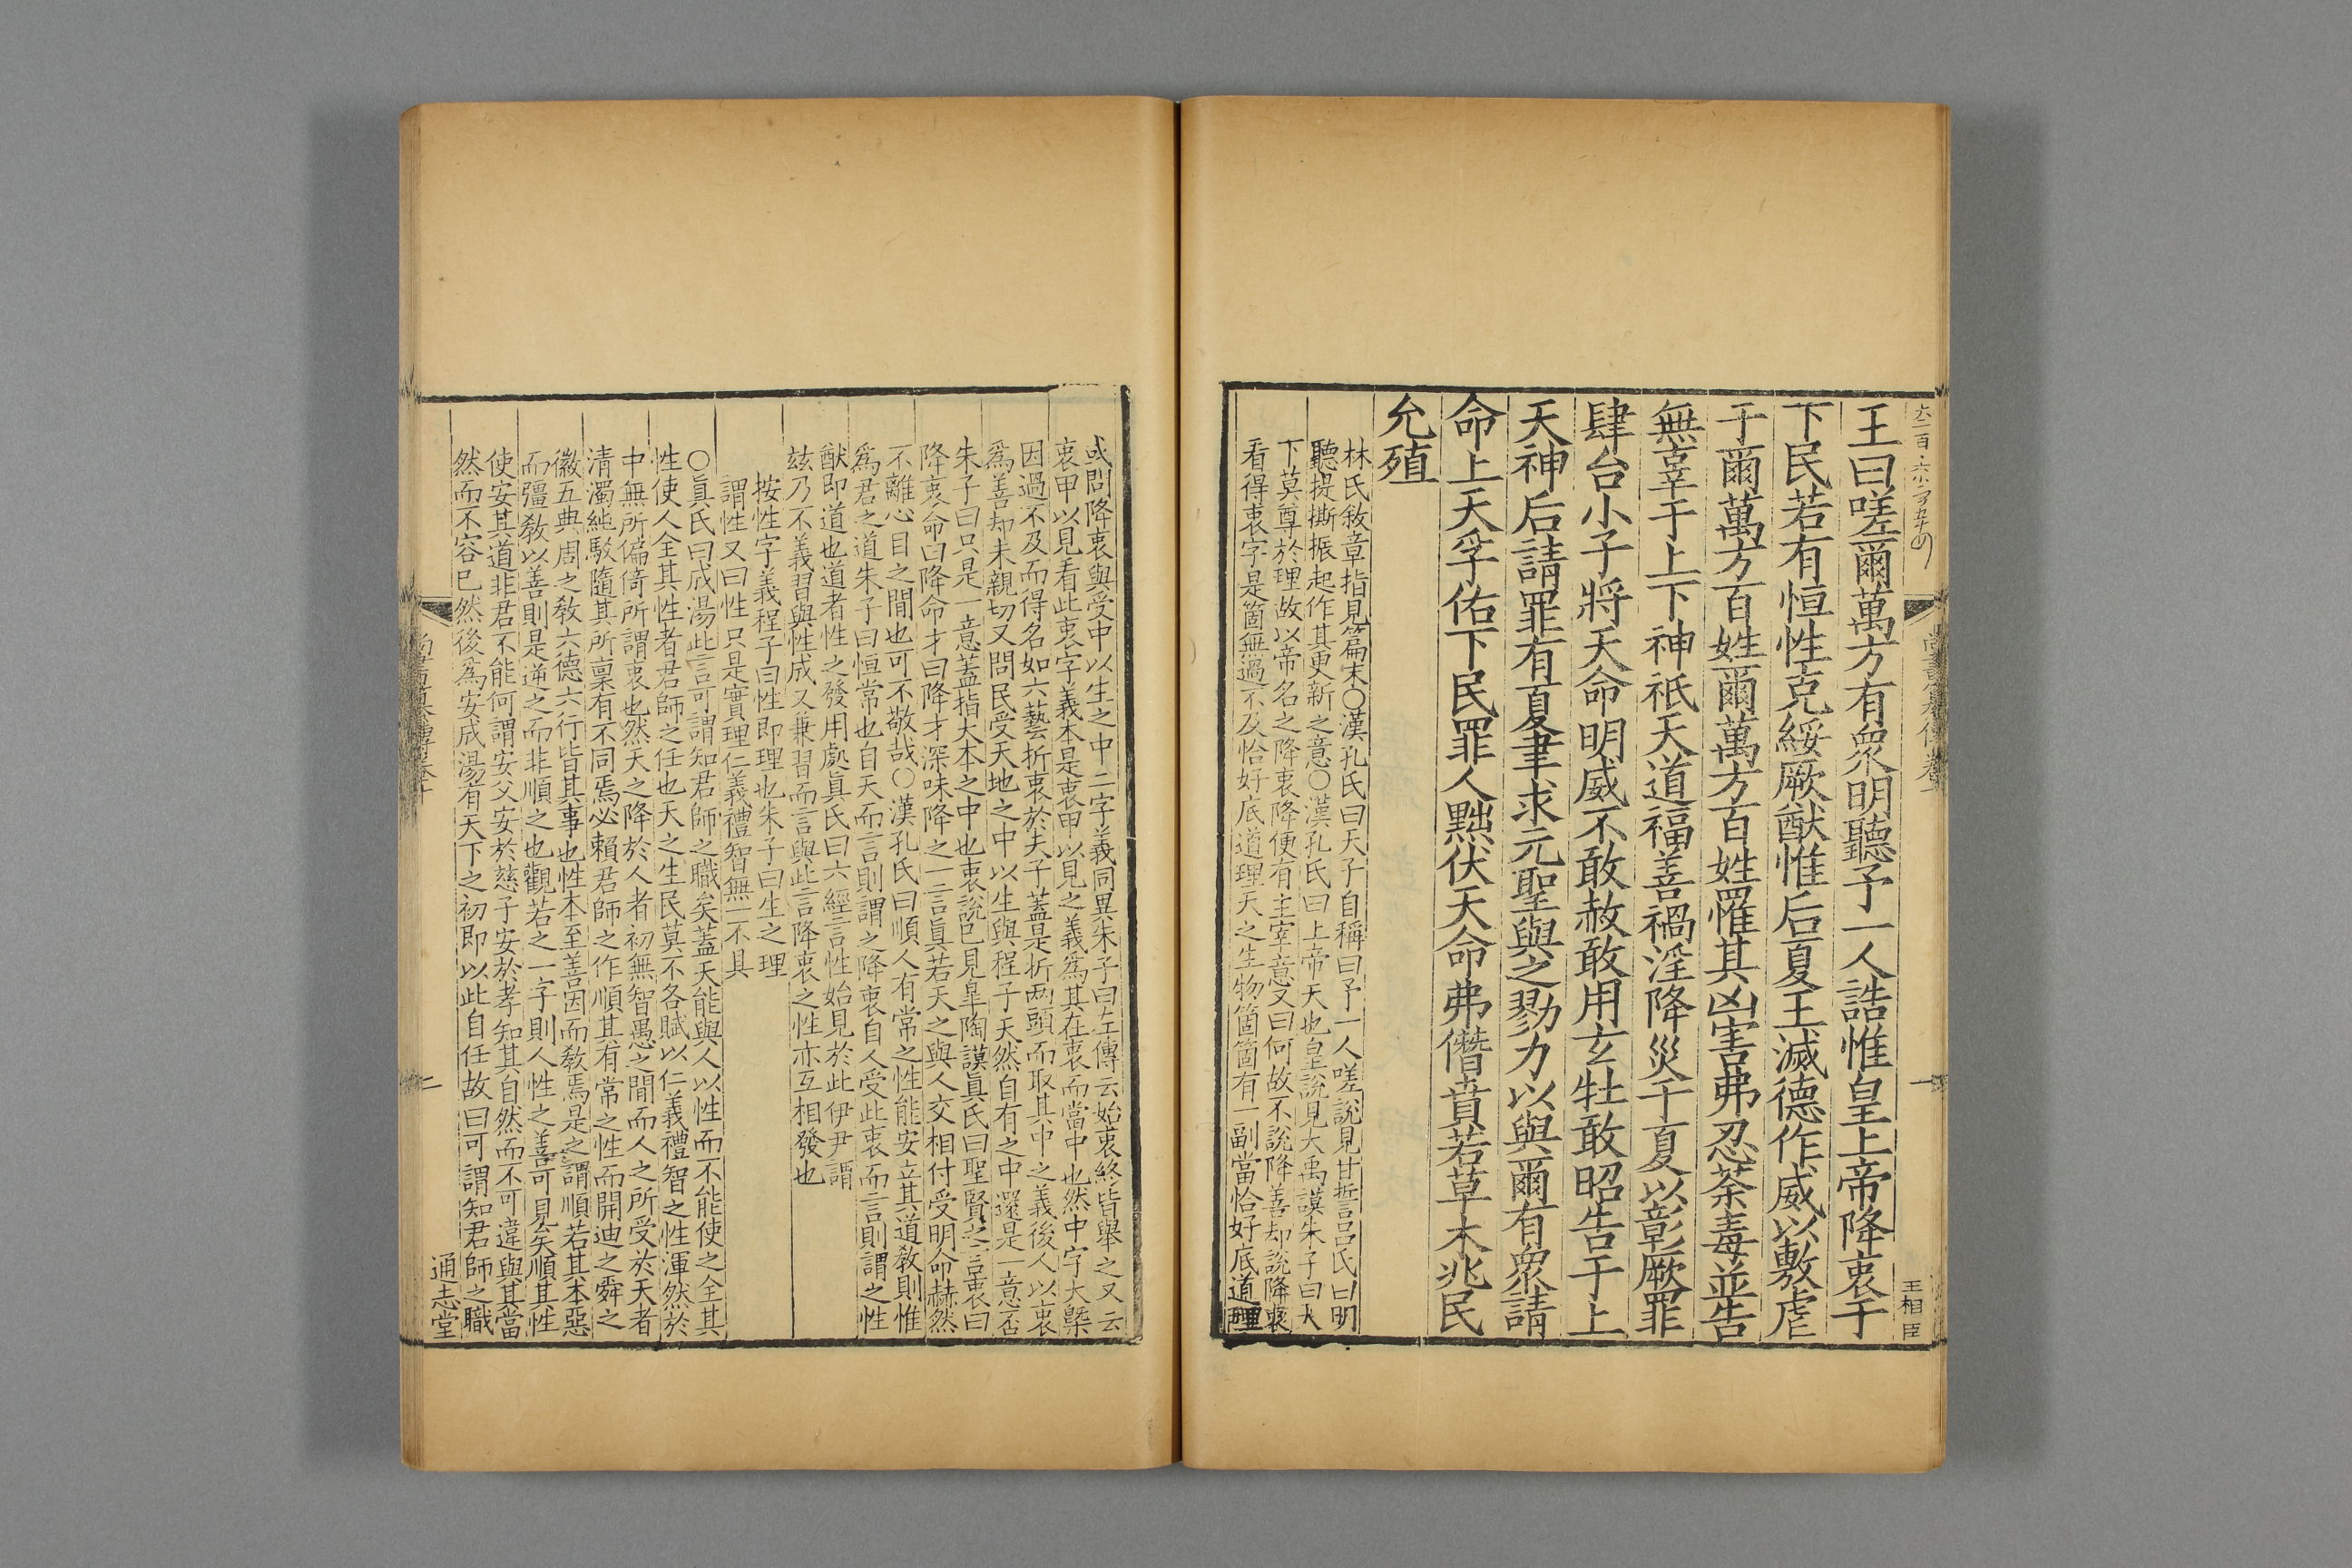 王曰嗟爾萬方有衆明聽予一人誥惟皇上帝降衷于
下民若有恒性克綏厥猷惟后夏王滅德作威以敷虐
于爾萬方百姓爾萬方百姓罹其凶害弗忍荼毒並告
無辜于上下神祇天道福善禍淫降災于夏以彰厥罪
肆台小子將天命明威不敢赦敢用玄牡敢昭告于上
天神后請罪有夏聿求元聖與之勠力以與爾有衆請
命上天孚佑下民罪人黜伏天命弗僭賁若草木兆民
允殖
林氏敘章指見篇末○漢孔氏曰天子自稱曰予一人嗟說見甘誓呂氏曰明
聽提撕振起作其更新之意○漢孔氏曰上帝天也皇說見大禹謨朱子曰人
下莫尊於理故以帝名之降衷降便有主宰意又曰何故不說降善却說降衷
看得衷字是箇無過不及恰好底道理天之生物箇箇有一副當恰好底道理
王相臣
或問降衷與受中以生之中二字義同異朱子曰左傳云始衷終皆舉之又云
衷甲以見看此衷字義本是衷甲以見之義爲其在衷而當中也然中字大槩
因過不及而得名如六藝折衷於夫子蓋是折兩頭而取其中之義後人以衷
爲善却未親切又問民受天地之中以生與程子天然自有之中還是一意否
朱子曰只是一意蓋指大本之中也衷說已見皐陶謨眞氏曰聖賢之言衷曰
降衷命曰降命才曰降才深味降之一言眞若天之與人交相付受明命赫然
不離心目之間也可不敬哉○漢孔氏曰順人有常之性能安立其道敎則惟
爲君之道朱子曰恒常也自天而言則謂之降衷自人受此衷而言則謂之性
猷即道也道者性之發用處眞氏曰六經言性始見於此伊尹謂
兹乃不義習與性成又兼習而言與此言降衷之性亦互相發也
按性字義程子曰性即理也朱子曰生之理
謂性又曰性只是實理仁義禮智無一不具
○眞氏曰成湯此言可謂知君師之職矣蓋天能與人以性而不能使之全其
性使人全其性者君師之任也天之生民莫不各賦以仁義禮智之性渾然於
中無所偏倚所謂衷也然天之降於人者初無智愚之間而人之所受於天者
清濁純駁隨其所稟有不同焉必賴君師之作順其有常之性而開迪之舜之
徽五典周之敎六德六行皆其事也性本至善因而敎焉是之謂順若其本惡
而彊敎以善則是逆之而非順之也觀若之一字則人性之善可見矣順其性
使安其道非君不能何謂安父安於慈子安於孝知其自然而不可違與其當
然而不容已然後爲安成湯有天下之初即以此自任故曰可謂知君師之職
二
通志堂